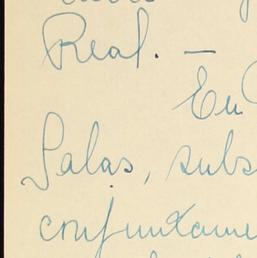 Real. —
En
Salas, subs
conjuntame